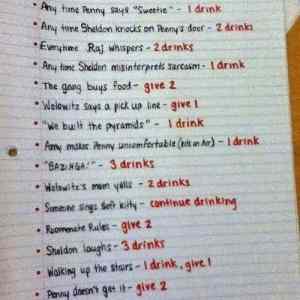 • Any time Penny says "Sweetie" - 1 drink
• Any time Sheldon knocks on Penny's door - 2 drinks
• Everytime Raj whispers - 2 drinks
• Any time Sheldon misinterprets sarcasm - 1 drink
• The gang buys food - give 2
• Wolowitz says a pick up line - give 1
• "We built the pyramids" - 1 drink
• Amy makes Penny uncomfortable (hits on her) - 1 drink
• "BAZINGA!" - 3 drinks
• Wolowitz's mom yells - 2 drinks
• Someone sings soft kitty - continue drinking
• Roommate Rules - give 2
• Sheldon laughs - 3 drinks
• Walking up the stairs - 1 drink, give 1
• Penny doesn't get it - give 2